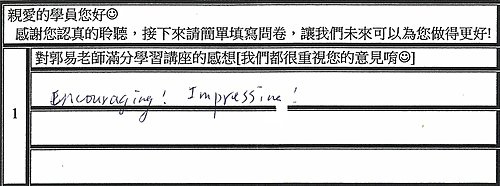 親愛的學員您好☺
感謝您認真的聆聽，接下來請簡單填寫問卷，讓我們未來可以為您做得更好!
對郭易老師滿分學習講座的感想[我們都很重視您的意見唷☺]
1
Encouraging! Impressine!